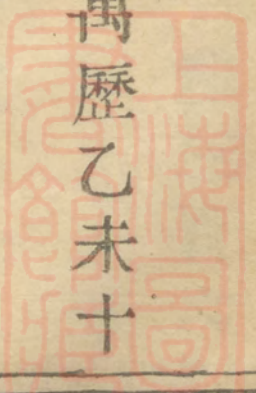 萬歷乙未十
上海圖
書館藏